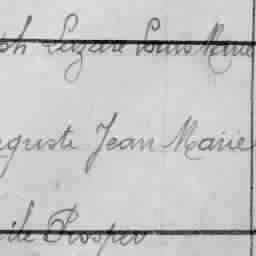 ph Lazare Louis Marie
eguste Jean Marie
ile Prosper